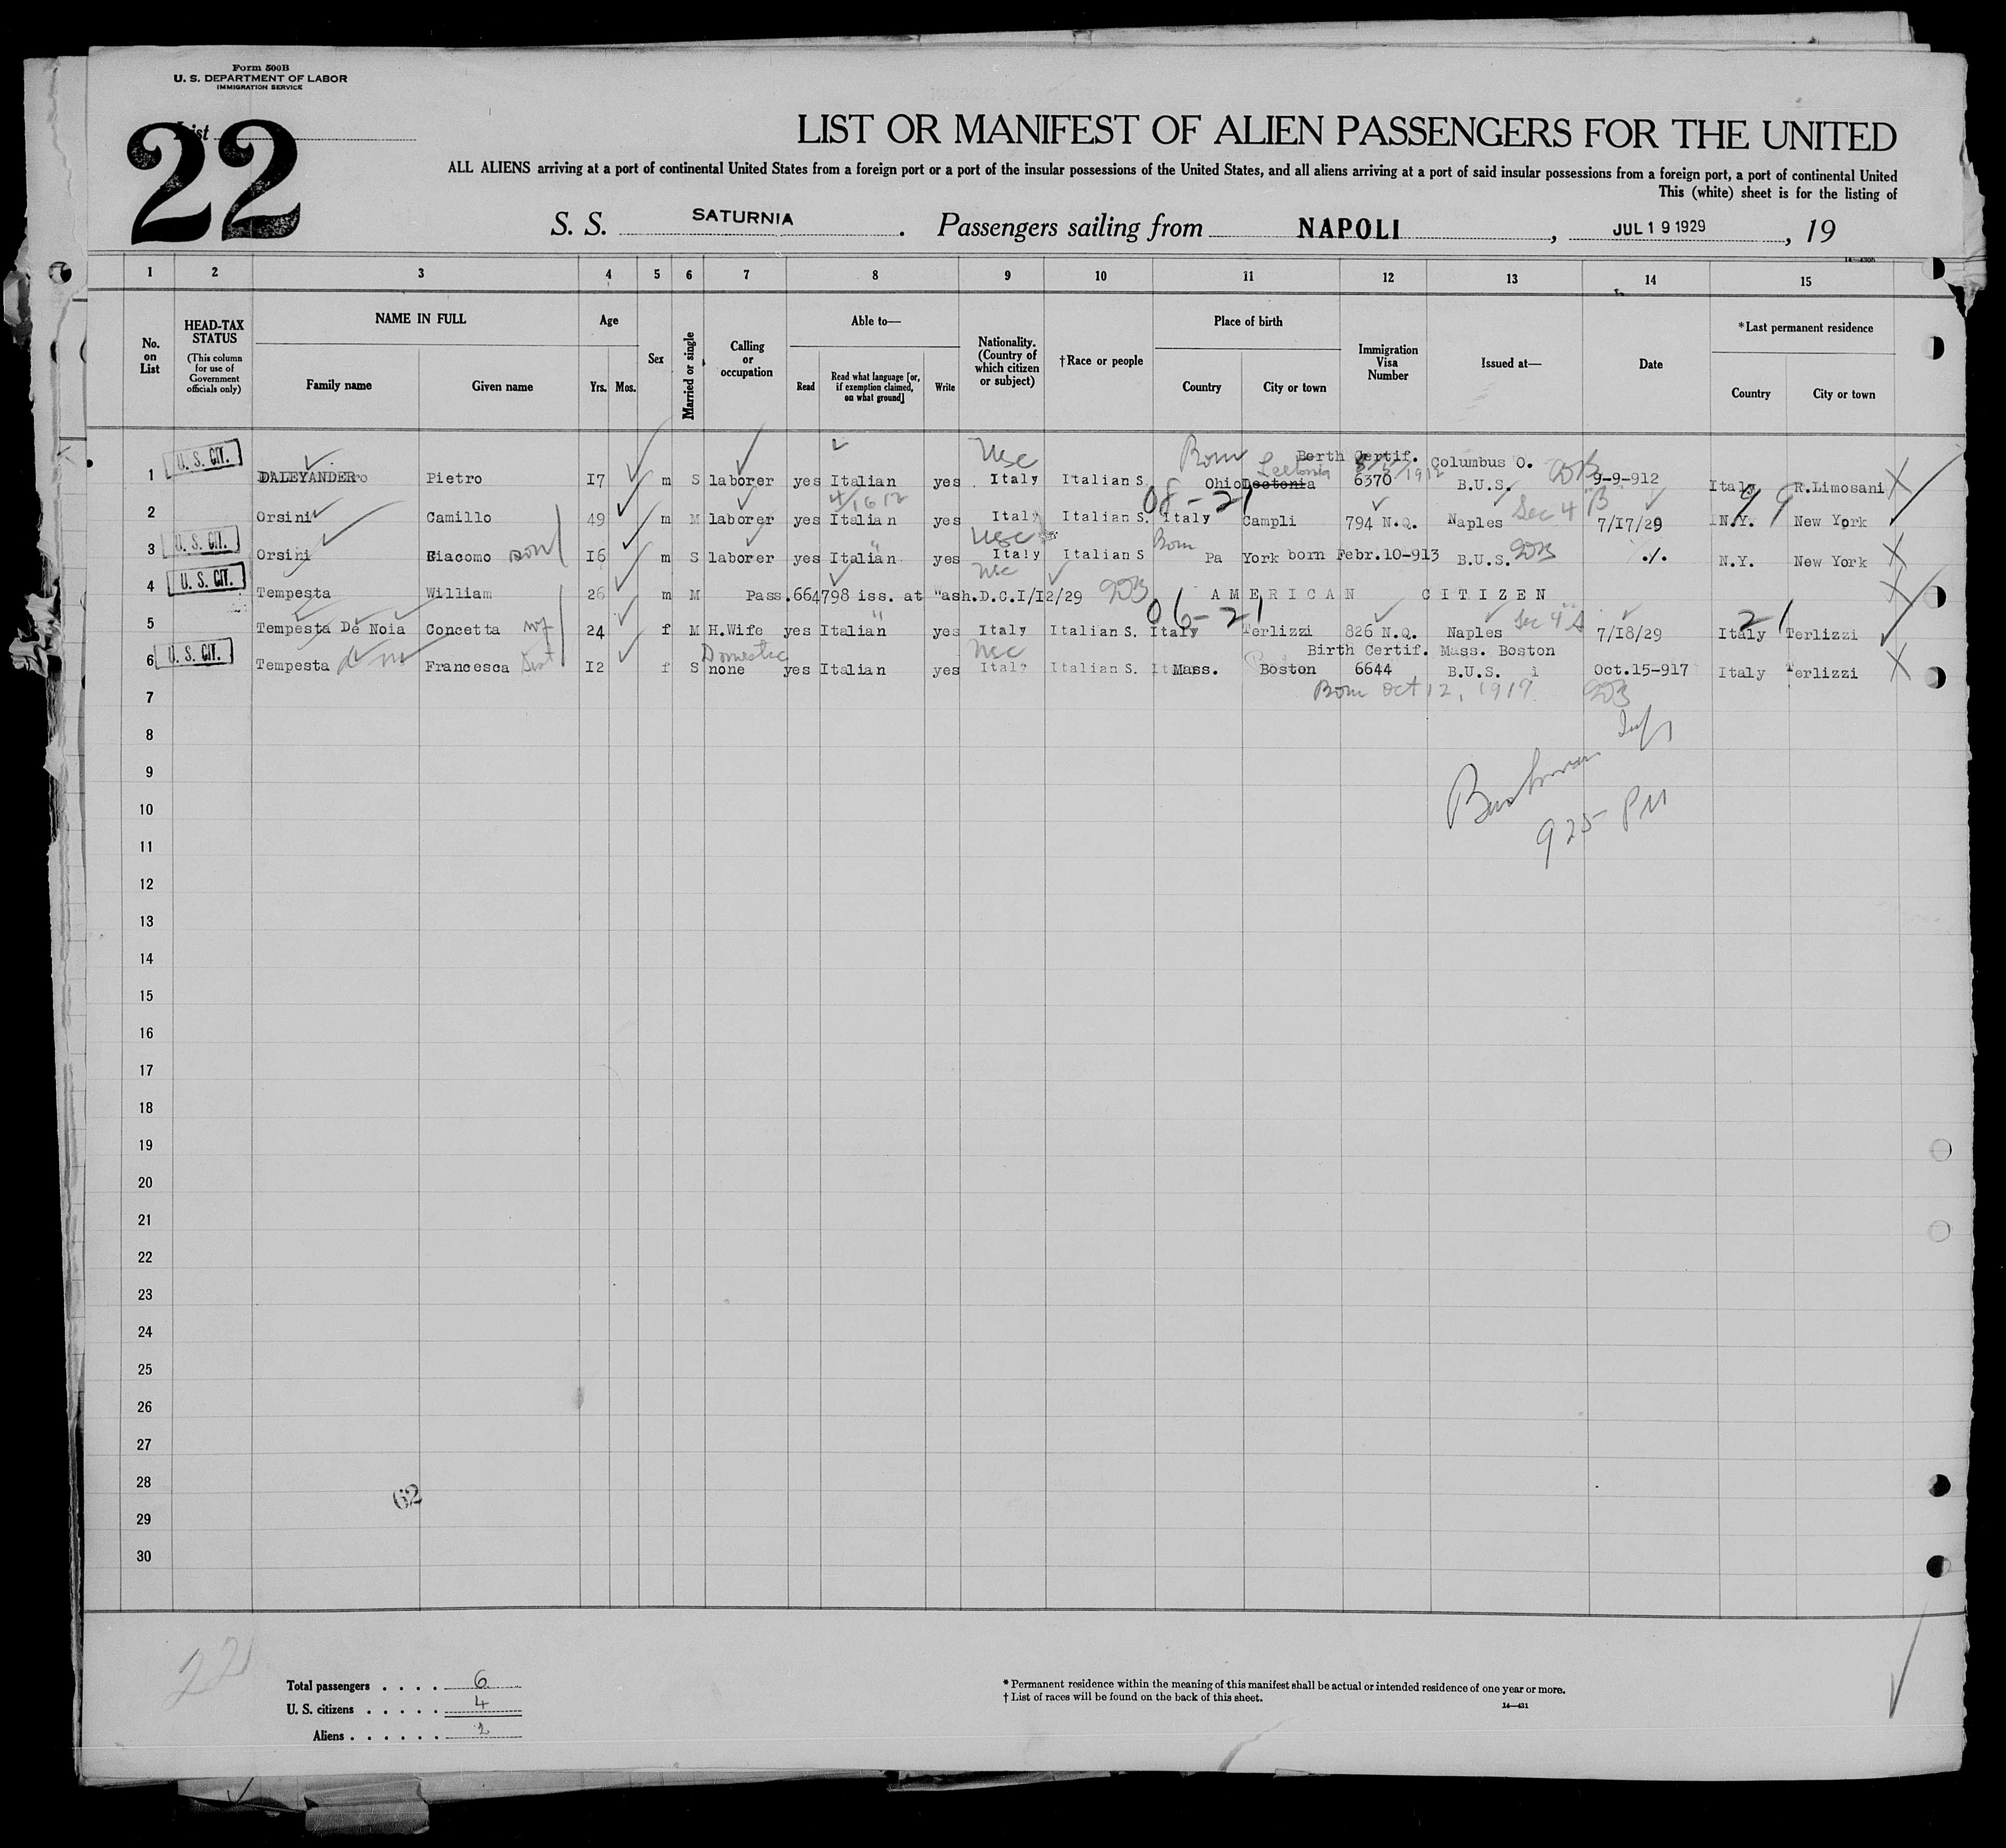 Form 500B
U. S. DEPARTMENT OF LABOR
IMMIGRATION SERVICE
List
22
LIST OR MANIFEST OF ALIEN PASSENGERS FOR THE UNITED
ALL ALIENS arriving at a port of continental United States from a foreign port or a port of the insular possessions of the United States, and all aliens arriving at a port of said insular possessions from a foreign port, a port of continental United
This (white) sheet is for the listing of
S. S. SATURNIA . Passengers sailing from NAPOLI , JUL 19 1929 , 19
1 2 3 4 5 6 7 8 9 10 11 12 13 14 15
No. on List
HEAD-TAX STATUS
(This column for use of Government officials only)
NAME IN FULL
Family name Given name
Age
Yrs. Mos.
Sex
Married or single
Calling or occupation
Able to—
Read
Read what language [or, if exemption claimed, on what ground]
Write
Nationality. (Country of which citizen or subject)
†Race or people
Place of birth
Country City or town
Immigration Visa Number
Issued at—
Date
*Last permanent residence
Country City or town
U. S. CIT. USC Born Leetonia Berth Certif. 1912 Columbus O.
1 Pietro 17 m S laborer yes Italian yes Italy Italian S. Ohio 6370 B.U.S. 9-9-912 Italy R.Limosani
4/16 12 08-21 Sec 4 B 99
2 Orsini Camillo 49 m M laborer yes Italian yes Italy Italian S. Italy Campli 794 N.Q. Naples 7/17/29 N.Y. New York
U. S. CIT. USC Born
3 Orsini Giacomo son 16 m S laborer yes Italian yes Italy Italian S Pa York born Febr.10-913 B.U.S. ./. N.Y. New York
U. S. CIT. USC
4 Tempesta William 26 m M Pass.664798 iss. at "ash.D.C.I/I2/29 AMERICAN CITIZEN
06-21 Sec 4 A 21
5 Tempesta De Noia Concetta wf 24 f M H.Wife yes Italian yes Italy Italian S. Italy Terlizzi 826 N.Q. Naples 7/18/29 Italy Terlizzi
U. S. CIT. Domestic USC Birth Certif. Mass. Boston
6 Tempesta Francesca Sist 12 f S none yes Italian yes Italy Italian S. Mass. Boston 6644 B.U.S. Oct.15-917 Italy Terlizzi
7 Born Oct 12, 1917
8
9
10
925 PM
11
12
13
14
15
16
17
18
19
20
21
22
23
24
25
26
27
28
62
29
30
22
Total passengers . . . . 6
U. S. citizens . . . . . 4
Aliens . . . . . . 2
* Permanent residence within the meaning of this manifest shall be actual or intended residence of one year or more.
† List of races will be found on the back of this sheet.
14—431